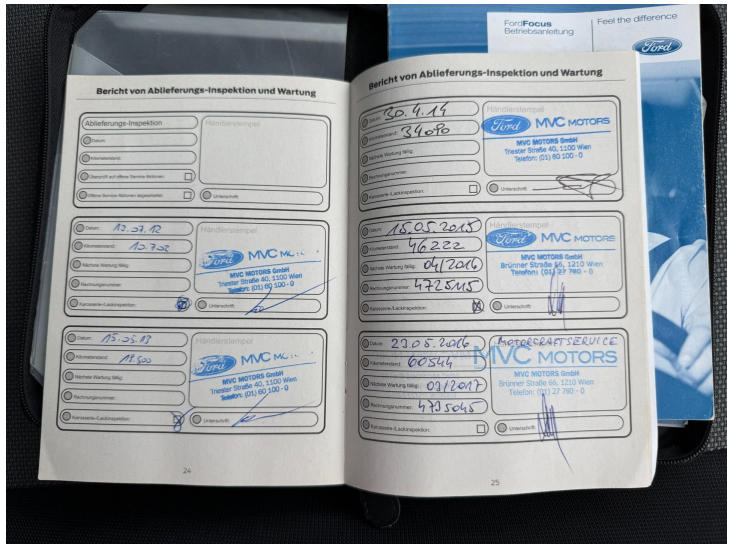 FordFocus
Betriebsanleitung
Feel the difference
Ford
Bericht von Ablieferungs-Inspektion und Wartung
Ablieferungs-Inspektion
Händlerstempel
Datum:
Kilometerstand:
Überprüft auf offene Service-Aktionen:
Offene Service-Aktionen abgearbeitet:
Unterschrift:
Datum: 12.07.12
Kilometerstand: 10.702
Nächste Wartung fällig:
Rechnungsnummer:
Karosserie-/Lackinspektion:
Händlerstempel
Ford MVC
MVC MOTORS GmbH
Triester Straße 40, 1100 Wien
Telefon: (01) 60 100 - 0
Unterschrift:
Datum: 15.05.13
Kilometerstand:
Nächste Wartung fällig:
Rechnungsnummer:
Karosserie-/Lackinspektion:
Händlerstempel
Ford MVC
MVC MOTORS GmbH
Triester Straße 40, 1100 Wien
Telefon: (01) 60 100 - 0
Unterschrift:
24
Bericht von Ablieferungs-Inspektion und Wartung
Datum: 30.4.14
Kilometerstand: 34090
Nächste Wartung fällig:
Rechnungsnummer:
Karosserie-/Lackinspektion:
Händlerstempel
Ford MVC MOTORS
MVC MOTORS GmbH
Triester Straße 40, 1100 Wien
Telefon: (01) 60 100 - 0
Unterschrift:
Datum: 15.05.2015
Kilometerstand: 46222
Nächste Wartung fällig: 04/2016
Rechnungsnummer: 4725115
Karosserie-/Lackinspektion:
Händlerstempel
Ford MVC MOTORS
MVC MOTORS GmbH
Brünner Straße 66, 1210 Wien
Telefon: (01) 27 780 - 0
Unterschrift:
Datum: 23.05.2016
Kilometerstand: 60544
Nächste Wartung fällig: 03/2017
Rechnungsnummer: 4795045
Karosserie-/Lackinspektion:
MOTORCRAFTSERVICE
MVC MOTORS
MVC MOTORS GmbH
Brünner Straße 66, 1210 Wien
Telefon: (01) 27 780 - 0
Unterschrift:
25